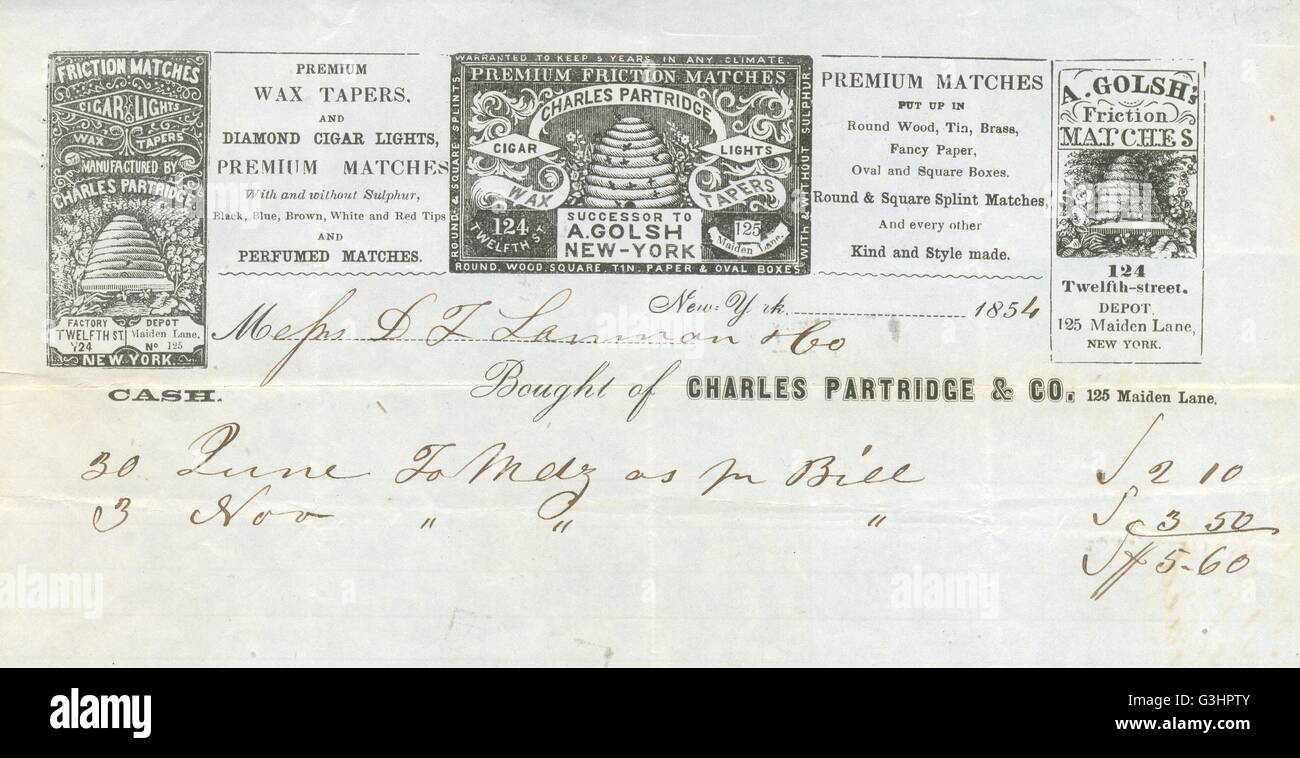 FRICTION MATCHES
CIGAR LIGHTS
WAX TAPERS
MANUFACTURED BY
CHARLES PARTRIDGE
FACTORY
TWELFTH ST
124
DEPOT
Maiden Lane.
No 125
NEW YORK.
PREMIUM
WAX TAPERS,
AND
DIAMOND CIGAR LIGHTS,
PREMIUM MATCHES
With and without Sulphur,
Black, Blue, Brown, White and Red Tips
AND
PERFUMED MATCHES.
WARRANTED TO KEEP 5 YEARS IN ANY CLIMATE.
ROUND & SQUARE SPLINTS.
PREMIUM FRICTION MATCHES
CHARLES PARTRIDGE
CIGAR LIGHTS
WAX TAPERS
124
TWELFTH ST.
SUCCESSOR TO
A. GOLSH
NEW-YORK
125
Maiden Lane.
WITH & WITHOUT SULPHUR.
ROUND, WOOD, SQUARE, TIN, PAPER & OVAL BOXES
PREMIUM MATCHES
PUT UP IN
Round Wood, Tin, Brass,
Fancy Paper,
Oval and Square Boxes.
Round & Square Splint Matches,
And every other
Kind and Style made.
A. GOLSH's
Friction
MATCHES
124
Twelfth-street.
DEPOT
125 Maiden Lane,
NEW YORK.
New-York, 1854
Messrs D T Lanman & Co
CASH.
Bought of CHARLES PARTRIDGE & CO. 125 Maiden Lane.
30 June To Mdz as pr Bill $ 2 10
3 Nov " " " $ 3 50
$ 5-60
alamy
alamy
alamy
a
a
a
alamy
Image ID: G3HPTY
www.alamy.com